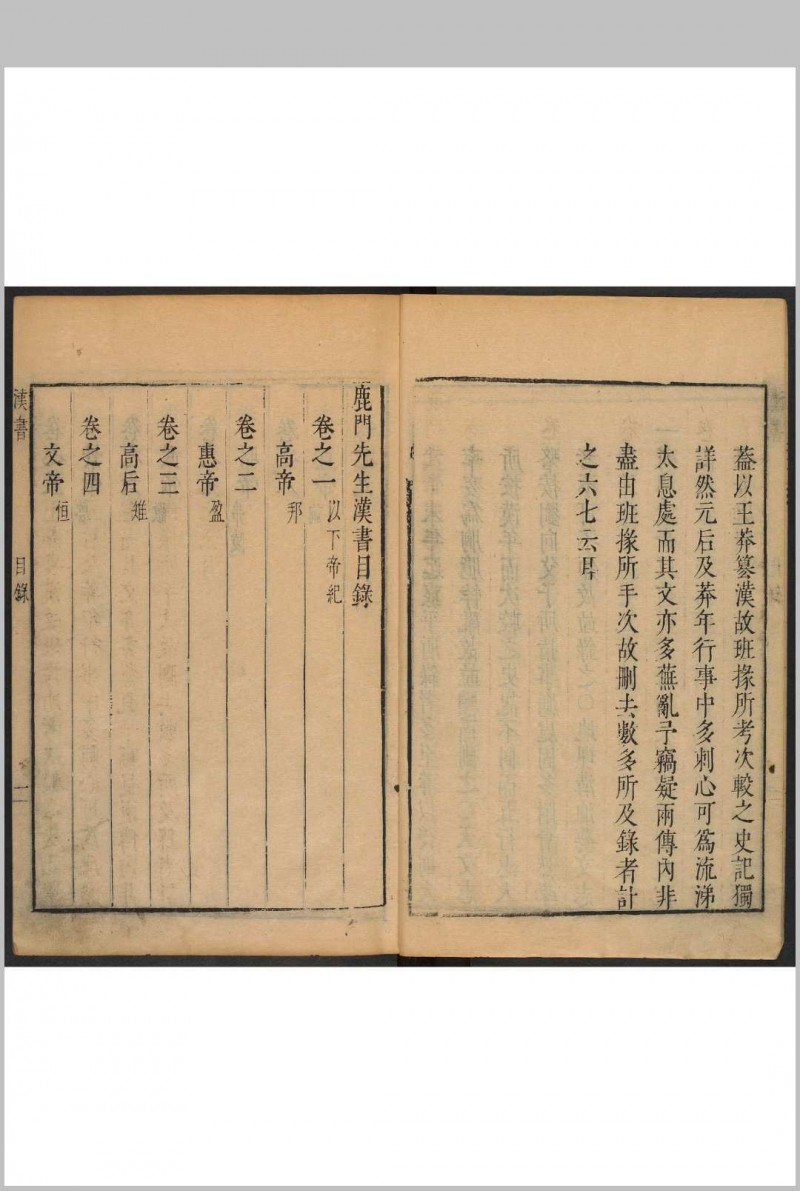 蓋以王莽篡漢故班掾所考次較之史記獨
詳然元后及莽年行事中多刺心可為流涕
太息處而其文亦多蕪亂予竊疑兩傳內非
盡由班掾所手次故刪去數多所及錄者計
之六七云耳
鹿門先生漢書目錄
卷之一 以下帝紀
高帝 邦
卷之二
惠帝 盈
卷之三
高后 雉
卷之四
文帝 恒
漢書 目錄 一